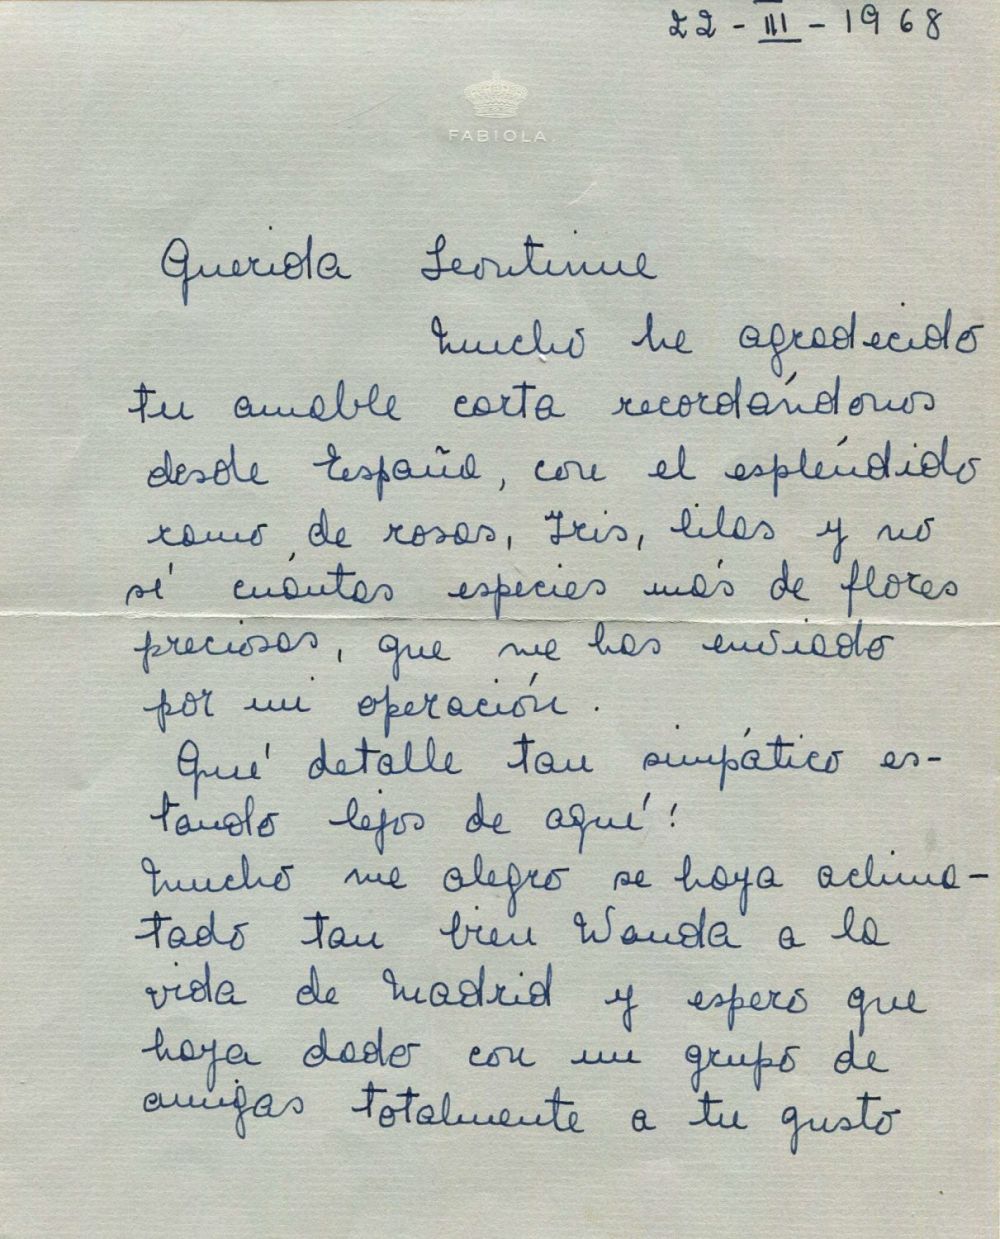 22-III-1968
FABIOLA
Querida Leontinne
Mucho he agradecido
tu amable carta recordándonos
desde España, con el espléndido
ramo de rosas, Iris, lilas y no
sé cuántas especies más de flores
preciosas, que me has enviado
por mi operación.
Qué detalle tan simpático es-
tando lejos de aquí!
Mucho me alegro se haya aclima-
tado tan bien Wanda a la
vida de Madrid y espero que
haya dado con un grupo de
amigas totalmente a tu gusto